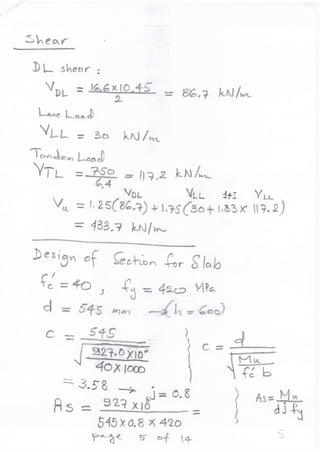 Shear
DL shear :
V_DL = 16.6×10.45 / 2 = 86.7 kN/m
Lane Load
VLL = 30 kN/m
Tandem Load
VTL = 750 / 6.4 = 117.2 kN/m
VDL VLL 1+I VLL
Vu = 1.25(86.7)+1.75(30+1.33×117.2)
= 433.7 kN/m
Design of Section for Slab
fc' = 40 , fy = 420 MPa
d = 545 mm → (h = 600)
c = 545 / √(927.0×10⁶ / 40×1000) } c = d / √(Mu / fc' b)
= 3.58 → j = 0.8
As = 927×10⁶ / 545×0.8×420 = } As = Mu / d j fy
page 5 of 14
5